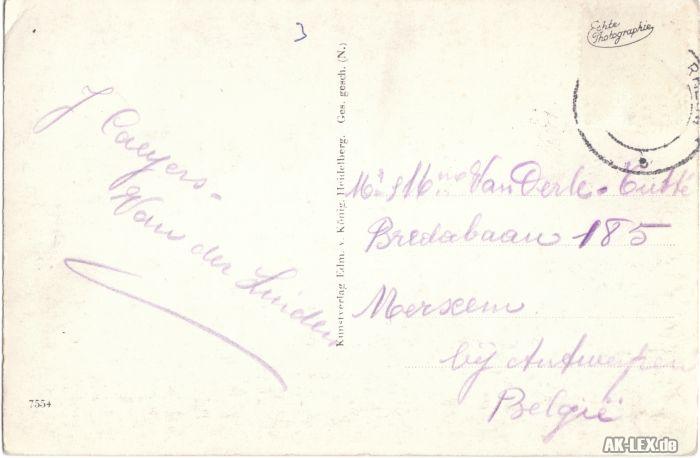 3
Echte
Photographie
J Caeyers-
Van der Linden
Kunstverlag Edm. v. König, Heidelberg. Ges. gesch. (N.)
Mr & Mme Van Derle-
Bredabaan 185
Merxem
bij Antwerpen
België
7554
AK-LEX.de